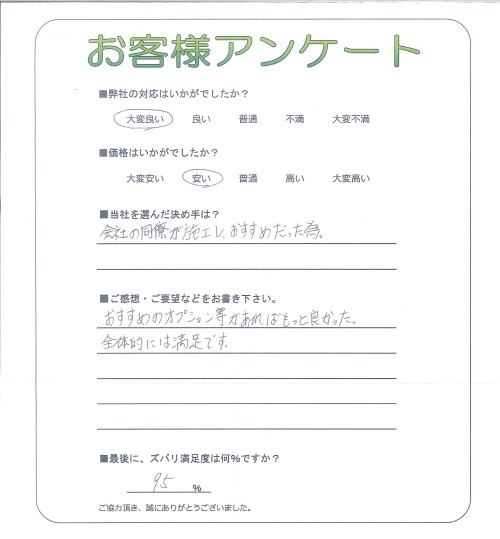 お客様アンケート
■弊社の対応はいかがでしたか？
大変良い 良い 普通 不満 大変不満
■価格はいかがでしたか？
大変安い 安い 普通 高い 大変高い
■当社を選んだ決め手は？
会社の同僚が施工し、おすすめだった為。
■ご感想・ご要望などをお書き下さい。
おすすめのオプション等があればもっと良かった。
全体的には満足です。
■最後に、ズバリ満足度は何%ですか？
95 %
ご協力頂き、誠にありがとうございました。